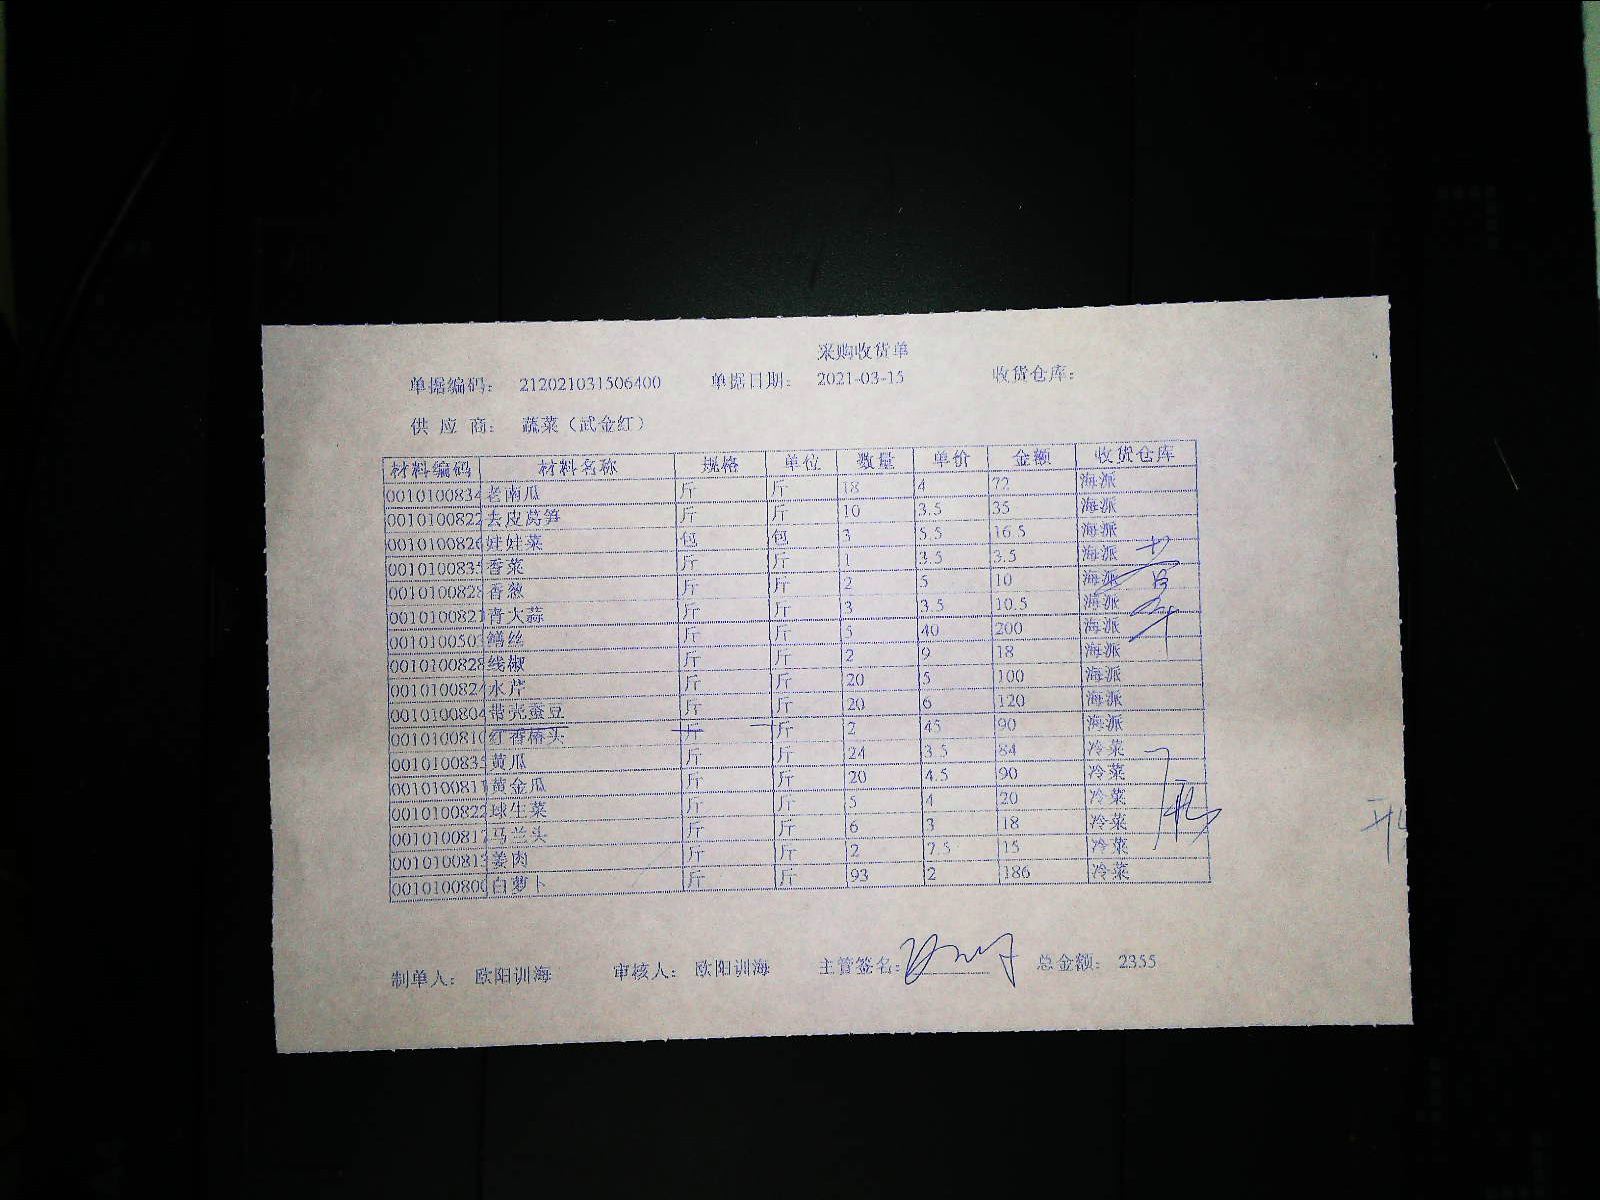 采购收货单
单据编码： 212021031506400 单据日期： 2021-03-15 收货仓库：
供 应 商： 蔬菜（武金红）
材料编码 材料名称 规格 单位 数量 单价 金额 收货仓库
0010100834 老南瓜 斤 斤 18 4 72 海派
0010100822 去皮莴笋 斤 斤 10 3.5 35 海派
0010100826 娃娃菜 包 包 3 5.5 16.5 海派
0010100835 香菜 斤 斤 1 3.5 3.5 海派
0010100828 香葱 斤 斤 2 5 10 海派
0010100821 青大蒜 斤 斤 3 3.5 10.5 海派
0010100503 鳝丝 斤 斤 5 40 200 海派
0010100828 线椒 斤 斤 2 9 18 海派
001010082 水芹 斤 斤 20 5 100 海派
0010100804 带壳蚕豆 斤 斤 20 6 120 海派
0010100810 红香椿头 斤 斤 2 45 90 海派
0010100835 黄瓜 斤 斤 24 3.5 84 冷菜
0010100811 黄金瓜 斤 斤 20 4.5 90 冷菜
0010100822 球生菜 斤 斤 5 4 20 冷菜
0010100817 马兰头 斤 斤 6 3 18 冷菜
0010100813 姜肉 斤 斤 2 7.5 15 冷菜
0010100800 白萝卜 斤 斤 93 2 186 冷菜
制单人： 欧阳训海 审核人： 欧阳训海 主管签名： 总金额： 2355